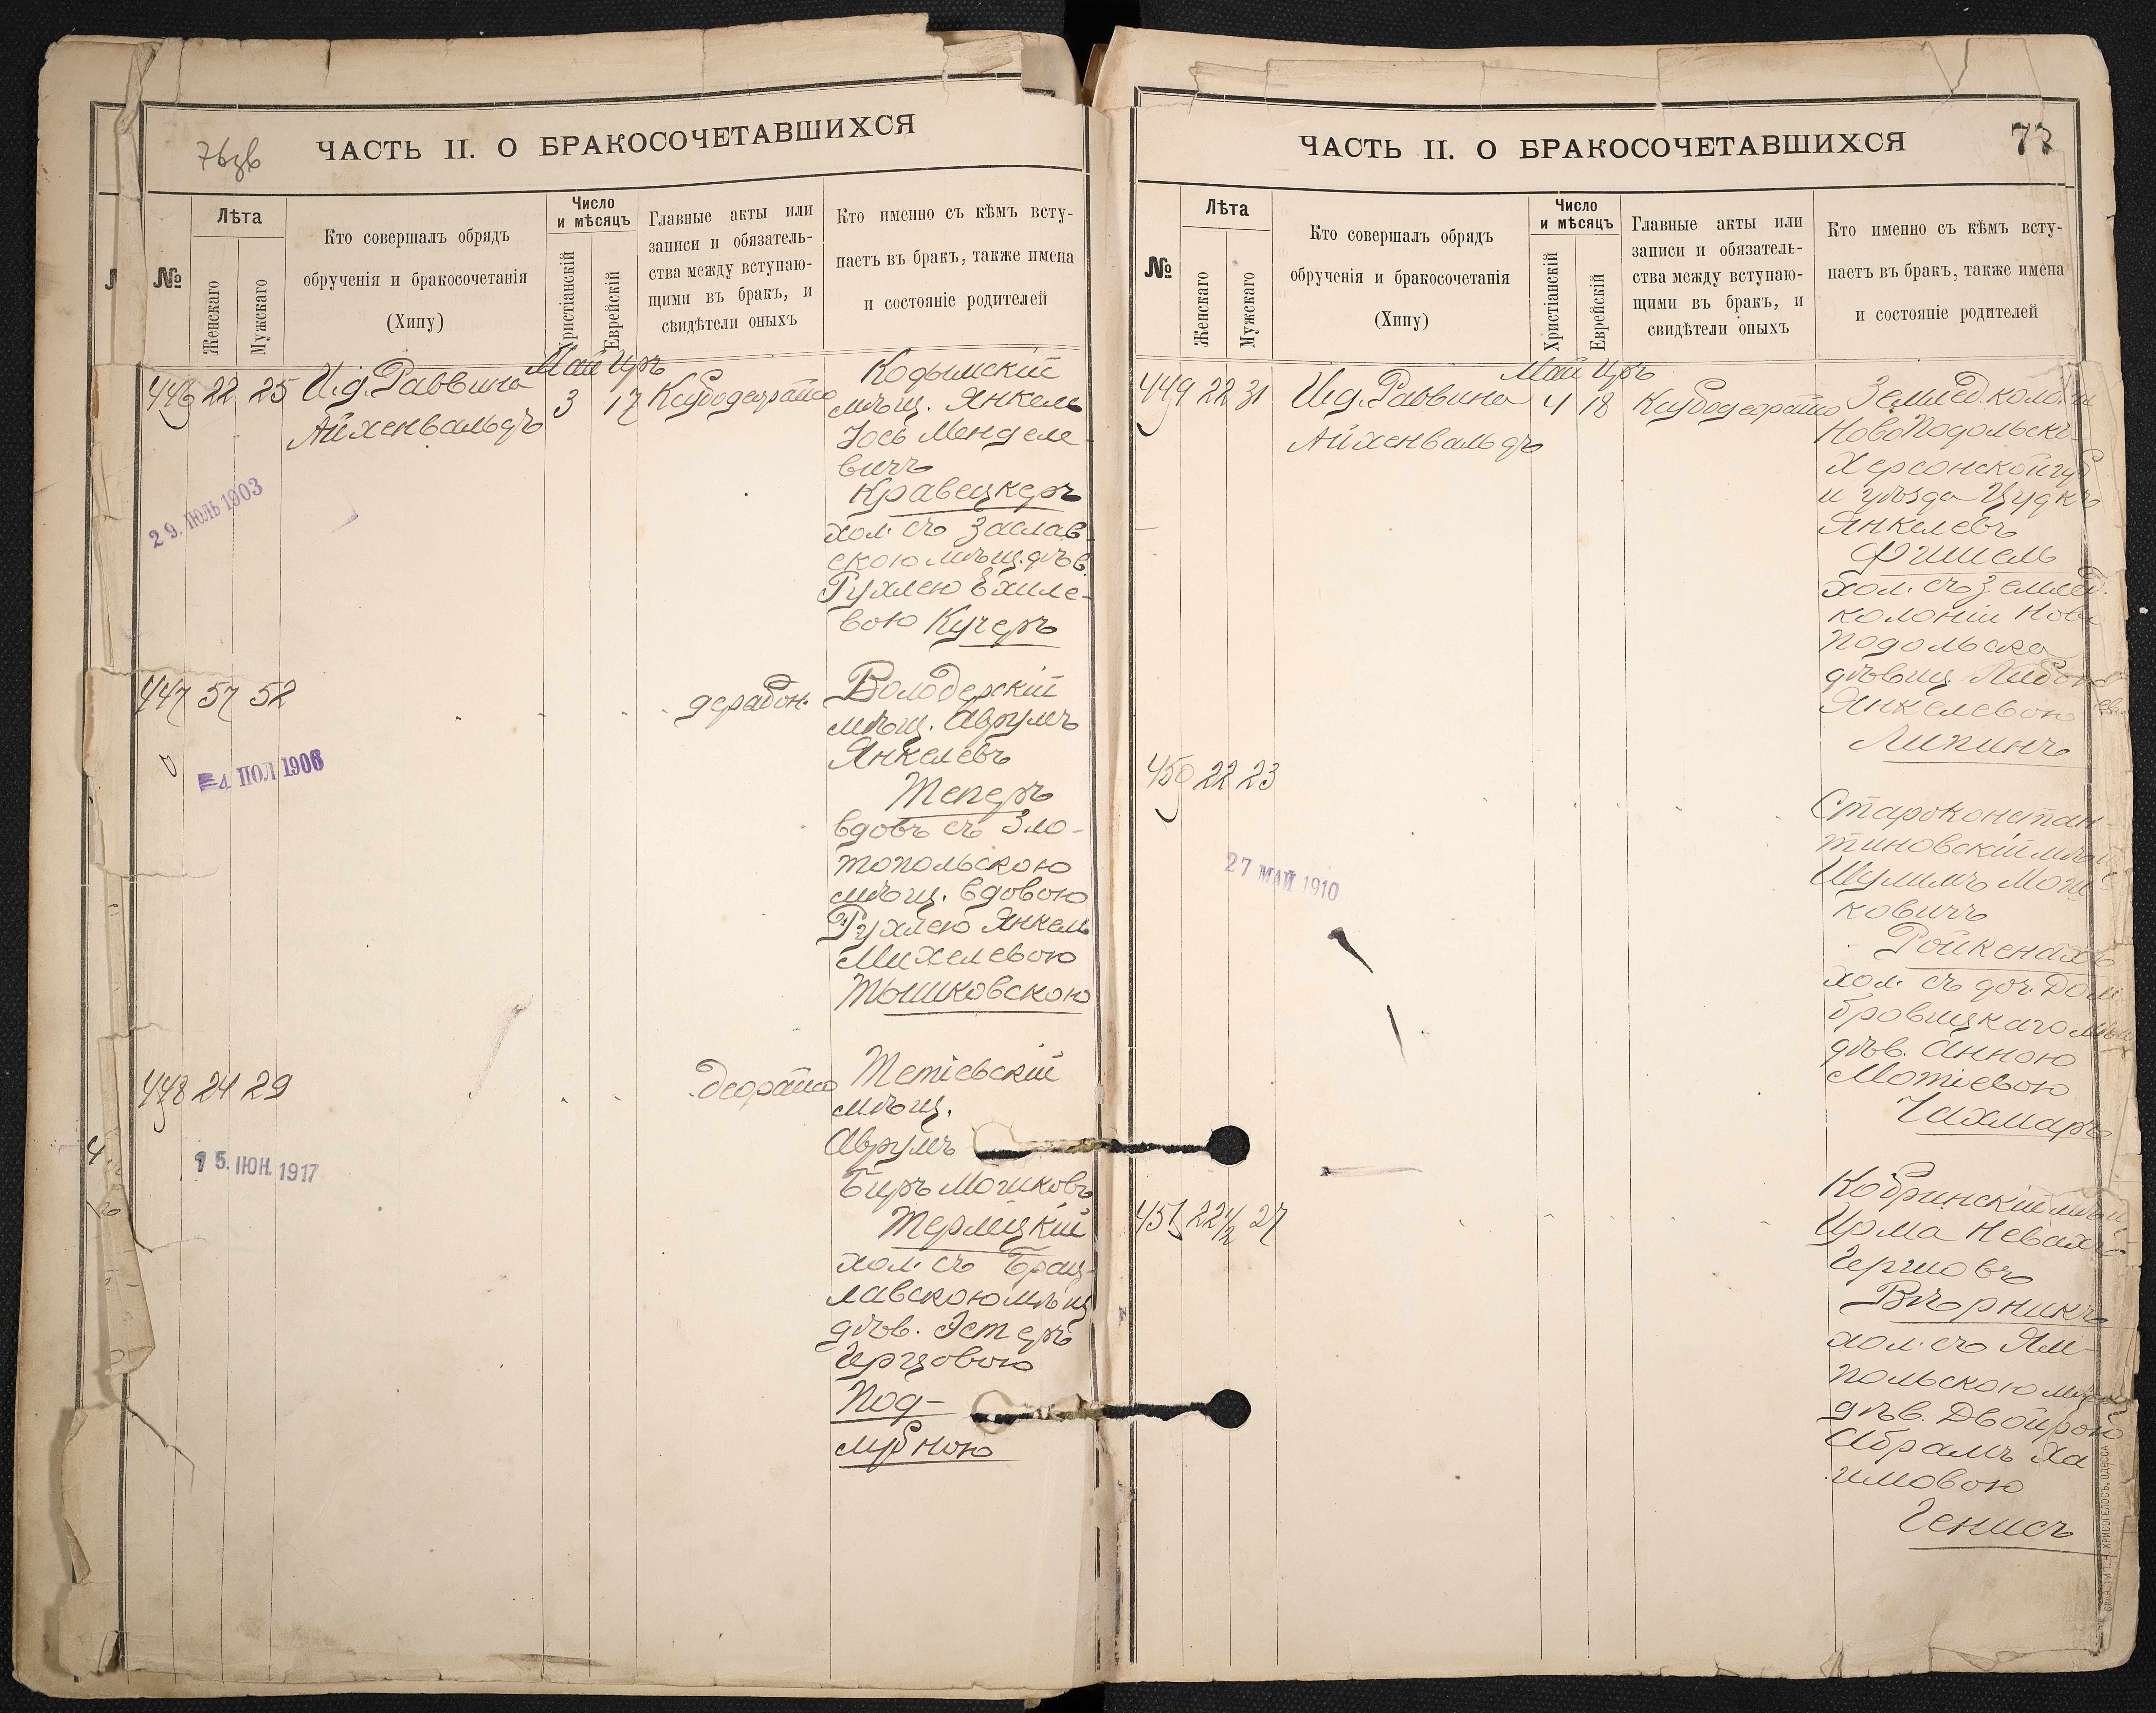 76зв
ЧАСТЬ II. О БРАКОСОЧЕТАВШИХСЯ
№
Лѣта
Женскаго
Мужскаго
Кто совершалъ обрядъ
обрученія и бракосочетанія
(Хипу)
Число
и мѣсяцъ
Христіанскій
Еврейскій
Главные акты или
записи и обязатель-
ства между вступаю-
щими въ бракъ, и
свидѣтели оныхъ
Кто именно съ кѣмъ всту-
паетъ въ бракъ, также имена
и состояніе родителей
Май Иръ
446 22 25 И.д. Раввина 3 17
Айхенвальдъ
Кодымскій
мѣщ. Янкель
Іось Менделе-
вичъ
Кравецкеръ
хол. съ Заслав-
скою мѣщ. дѣв.
Рухлею Ехиле-
вою Кучеръ
29. ІЮЛЬ 1903
447 57 52
Володерскій
мѣщ. Аврумъ
Янкелевъ
Теперъ
вдов. съ Зло-
топольскою
мѣщ. вдовою
Рухлею Янкель
Михелевою
Тышковскою
4 ІЮЛ 1906
448 24 29
Тетіевскій
мѣщ.
Аврумъ
Беръ Мошковъ
Терлицкій
хол. съ Брац-
лавскою мѣщ
дѣв. Эстеръ
Герцовою
Под-
15. ІЮН. 1917
ЧАСТЬ II. О БРАКОСОЧЕТАВШИХСЯ
77
№
Лѣта
Женскаго
Мужскаго
Кто совершалъ обрядъ
обрученія и бракосочетанія
(Хипу)
Число
и мѣсяцъ
Христіанскій
Еврейскій
Главные акты или
записи и обязатель-
ства между вступаю-
щими въ бракъ, и
свидѣтели оныхъ
Кто именно съ кѣмъ всту-
паетъ въ бракъ, также имена
и состояніе родителей
Май Иръ
449 22 31 И.д. Раввина 4 18
Айхенвальдъ
Землед. колоніи
Новоподольскъ
Херсонской губ
и уѣзда Цудикъ
Янкелевъ
Фишель
хол. съ землед.
колоніи Ново
подольска
дѣвиц. Либою
Янкелевою
Липинъ
450 22 23
Староконстан-
тиновскій мѣщ
Шулимъ Мош
ковичъ
хол. съ доч. Дом
бровицкаго мѣщ
дѣв. Анною
Мотіевою
Чахмаръ
27 МАЙ 1910
451 22 1/2 27
Кобринскій мѣщ
Ирма Невахъ
Гершовъ
хол. съ Ям-
польскою мѣщ
дѣв. Двойрою
Абрамъ Ха
имовою
Генисъ
ХРИСОГЕЛОСЪ, ОДЕССА